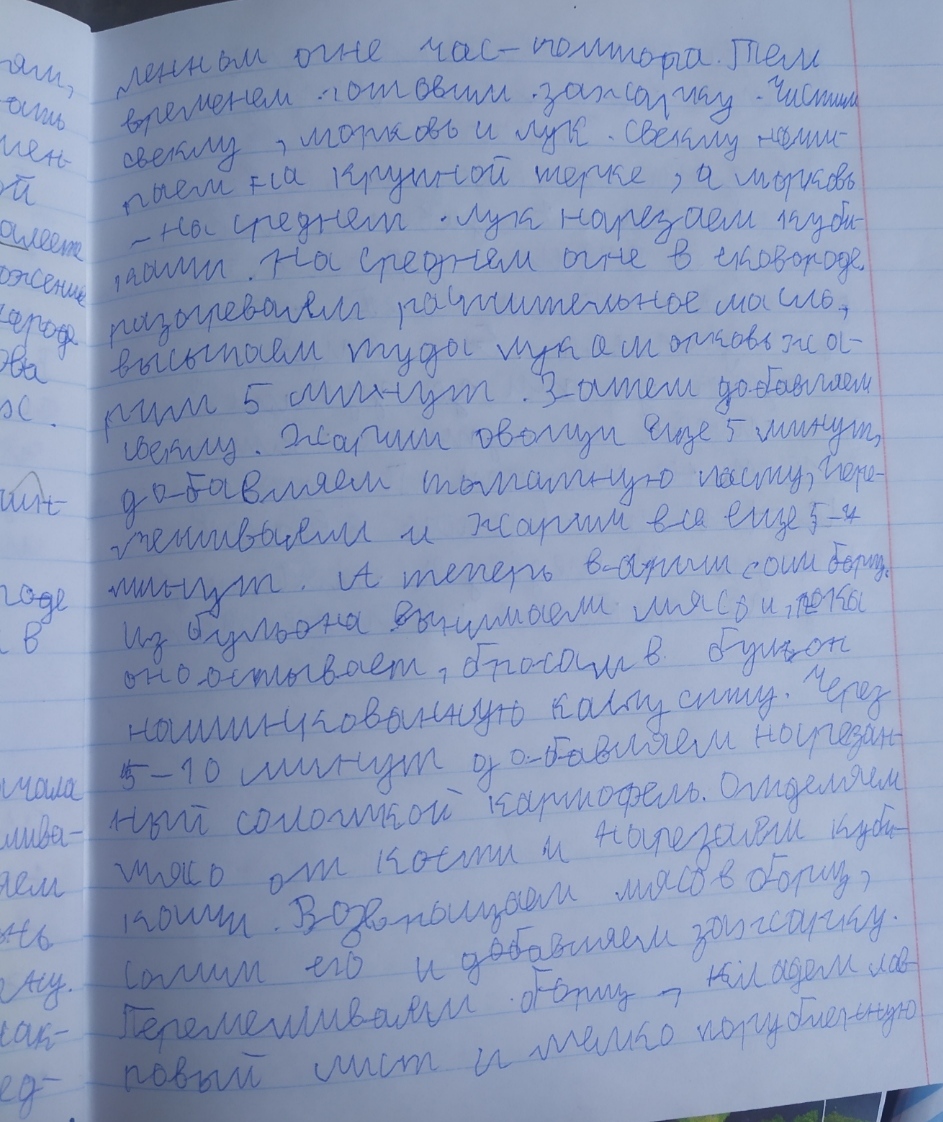 ленном огне час-полтора. Тем
временем готовим зажарку. Чистим
свеклу, морковь и лук. Свеклу нати-
раем на крупной терке, а морковь
- на среднем. Лук нарезаем куби-
ками. На среднем огне в сковороде
разогреваем растительное масло,
высыпаем туда лук и морковь жа-
рим 5 минут. Затем добавляем
свеклу. Жарим овощи еще 5 минут,
добавляем томатную пасту, пере-
мешиваем и жарим все еще 5-7
минут. А теперь варим сам борщ.
Из бульона вынимаем мясо и, пока
оно остывает, бросаем в бульон
нашинкованную капусту. Через
5-10 минут добавляем нарезан-
ный соломкой картофель. Отделяем
мясо от кости и нарезаем куби-
ками. Возвращаем мясо в борщ,
солим его и добавляем зажарку.
Перемешиваем борщ, кладем лав-
ровый лист и мелко порубленную
ями,
ать
мен-
ой
алеет
ожение
народе
ова
ж.
годе
в
ачала
лива-
яем
нь
жу.
как-
ед-